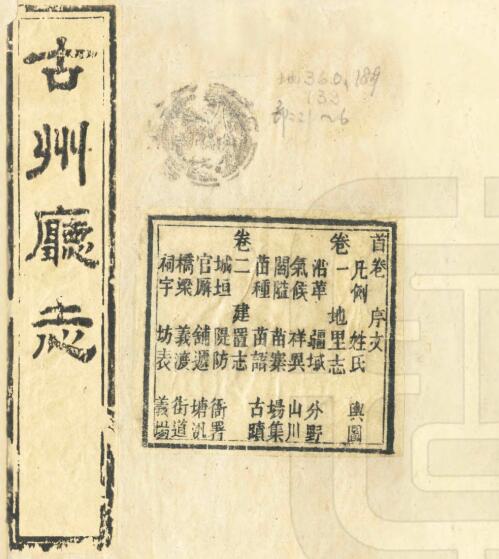 古州廳志
地360.189
133
首卷 序文
凡例 姓氏 輿圖
卷一 地里志
沿革 疆域 分野
氣候 祥異 山川
關隘 苗寨 場集
苗種 苗語 古蹟
卷二 建置志
城垣 隄防 衙署
官廨 鋪遞 塘汛
橋梁 義渡 街道
祠宇 坊表 義塜